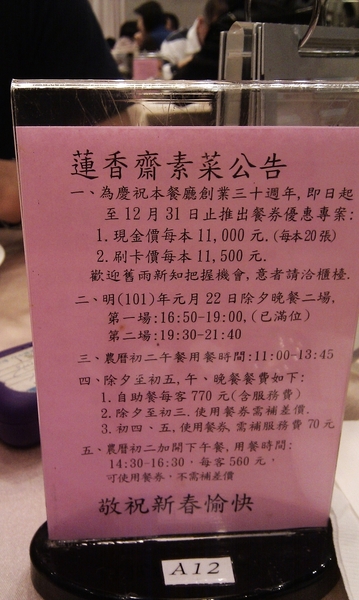 蓮香齋素菜公告
一、為慶祝本餐廳創業三十週年,即日起
至12月31日止推出餐券優惠專案:
1.現金價每本11,000元.(每本20張)
2.刷卡價每本11,500元.
歡迎舊雨新知把握機會,意者請洽櫃檯.
二、明(101)年元月22日除夕晚餐二場,
第一場:16:50-19:00,(已滿位)
第二場:19:30-21:40
三、農曆初二午餐用餐時間:11:00-13:45
四、除夕至初五,午、晚餐餐費如下:
1.自助餐每客770元(含服務費)
2.除夕至初三.使用餐券需補差價.
3.初四、五,使用餐券需補服務費70元
五、農曆初二加開下午餐,用餐時間:
14:30-16:30,每客560元,
可使用餐券,不需補差價
敬祝新春愉快
A12